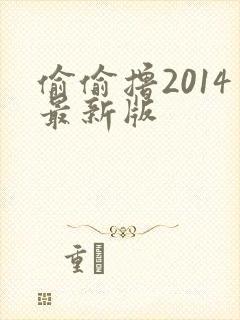 偷偷撸2014
最新版
重